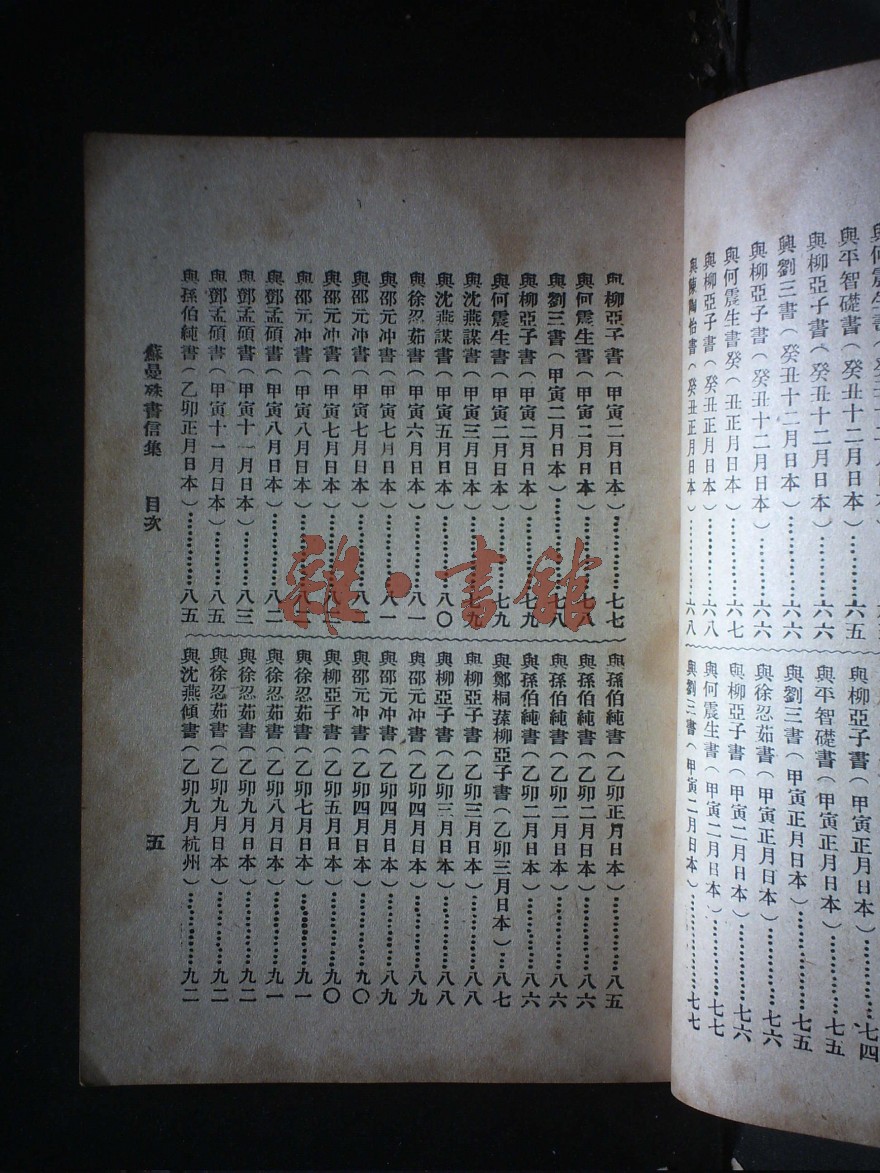 與何
與平智礎書（癸丑十二月日本）…………六五
與柳亞子書（癸丑十二月日本）…………六六
與劉三書（癸丑十二月日本）…………六六
與柳亞子書（癸丑十二月日本）…………六六
與何震生書癸（丑正月日本）…………六七
與柳亞子書（癸丑正月日本）…………六八
與陳陶怡書（癸丑正月日本）…………六八
與柳亞子書（甲寅正月日本）…………七四
與平智礎書（甲寅正月日本）…………七五
與劉三書（甲寅正月日本）…………七五
與徐忍茹書（甲寅正月日本）…………七六
與柳亞子書（甲寅二月日本）…………七六
與何震生書（甲寅二月日本）…………七七
與劉三書（甲寅二月日本）…………七七
與柳亞子書（甲寅二月日本）…………七七
與何震生書（甲寅二月日本）…………七八
與劉三書（甲寅二月日本）…………七八
與柳亞子書（甲寅二月日本）…………七九
與何震生書（甲寅二月日本）…………七九
與沈燕謀書（甲寅三月日本）…………七九
與沈燕謀書（甲寅五月日本）…………八〇
與徐忍茹書（甲寅六月日本）…………八一
與邵元冲書（甲寅七月日本）…………八一
與邵元冲書（甲寅七月日本）…………八二
與邵元冲書（甲寅七月日本）…………八二
與邵元冲書（甲寅八月日本）…………八二
與鄧孟碩書（甲寅八月日本）…………八二
與鄧孟碩書（甲寅十一月日本）…………八三
與鄧孟碩書（甲寅十一月日本）…………八五
與孫伯純書（乙卯正月日本）…………八五
與孫伯純書（乙卯正月日本）…………八五
與孫伯純書（乙卯二月日本）…………八六
與孫伯純書（乙卯二月日本）…………八六
與孫伯純書（乙卯二月日本）…………八六
與鄭桐蓀柳亞子書（乙卯三月日本）……八七
與柳亞子書（乙卯三月日本）…………八八
與柳亞子書（乙卯三月日本）…………八八
與邵元冲書（乙卯四月日本）…………八九
與邵元冲書（乙卯四月日本）…………八九
與邵元冲書（乙卯四月日本）…………九〇
與柳亞子書（乙卯五月日本）…………九〇
與徐忍茹書（乙卯七月日本）…………九一
與徐忍茹書（乙卯八月日本）…………九一
與徐忍茹書（乙卯九月日本）…………九二
與徐忍茹書（乙卯九月日本）…………九二
與沈燕傾書（乙卯九月杭州）…………九二
蘇曼殊書信集　目次　五
雜·書館